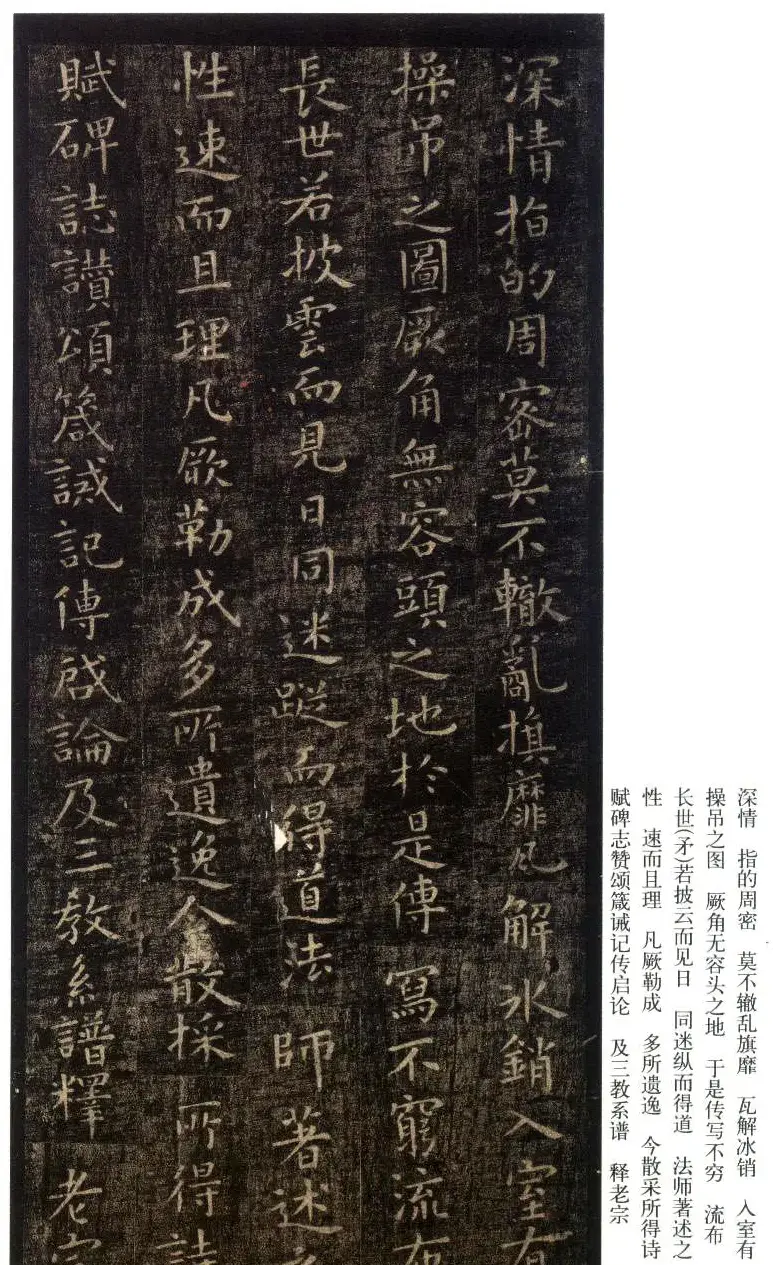 深情指的周密莫不轍亂旗靡瓦解氷銷入室有
操吊之圖厥角無容頭之地於是傳寫不窮流布
長世若披雲而見日同迷蹤而得道法師著述之
性速而且理凡厥勒成多所遺逸今散採所得詩
賦碑誌讚頌箴誡記傳啟論及三教系譜釋老宗
深情　指的周密　莫不辙乱旗靡　瓦解冰销　入室有
操吊之图　厥角无容头之地　于是传写不穷　流布
长世(矛)若披云而见日　同迷纵而得道　法师著述之
性　速而且理　凡厥勒成　多所遗逸　今散采所得诗
赋碑志赞颂箴诫记传启论　及三教系谱　释老宗